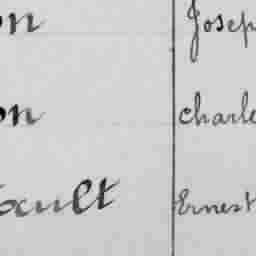 on Joseph
on Charle
Ernest